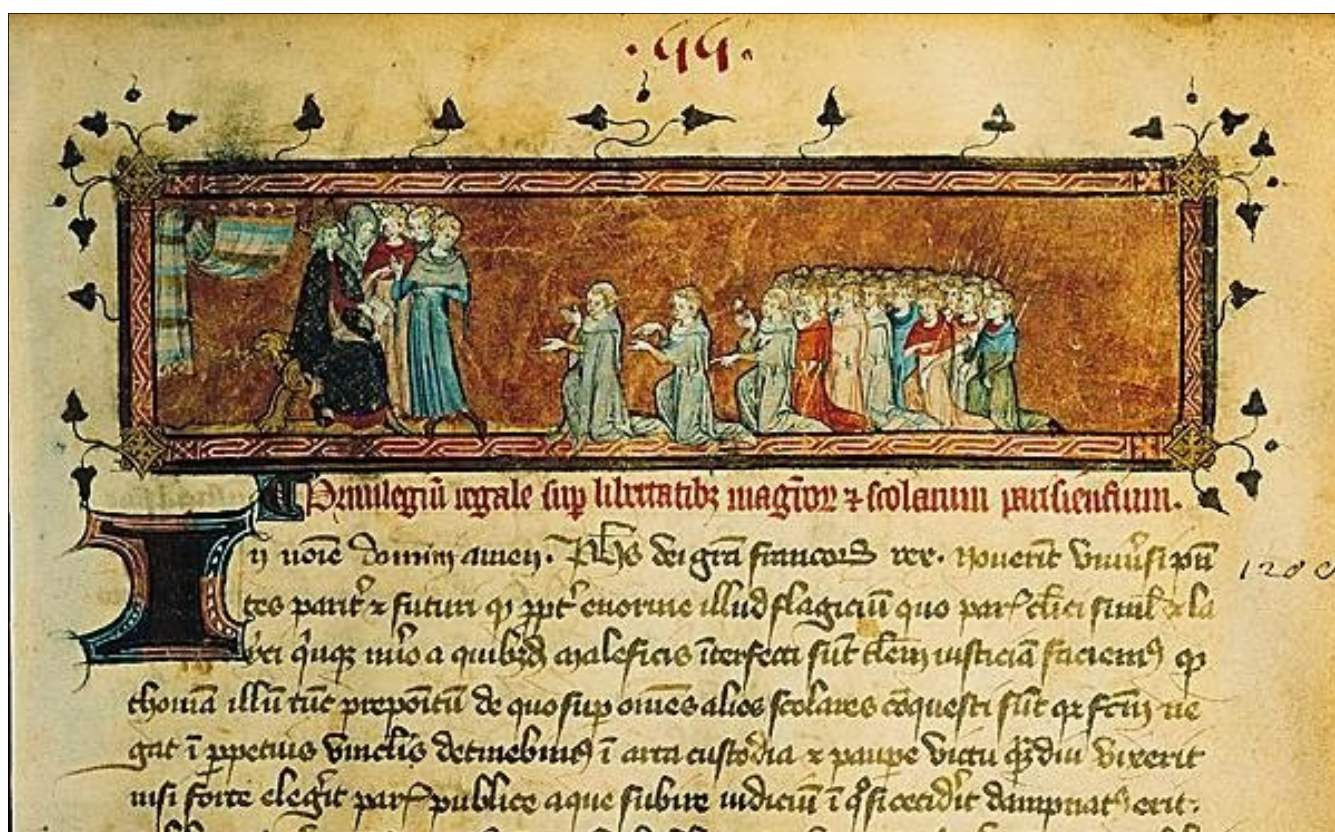 Priuilegiū regale sup libertatibꝫ magr̄oꝝ ⁊ scolarium parisiensium.
In noīe domini amen. Ph̄s dei gr̄a francoꝝ rex. Nouerit vniūsi p̄n 1200
tes parit̓ ⁊ futuri qꝫ ꝓpt̓ enorme illud flagiciū quo par̓ cl̄ici simul̓ ⁊ la
yci q̓nqꝫ nūo a quibꝰdā maleficis īterfecti sūt cleꝝ iusticiā faciemꝰ qꝫ
thomā illū tūc prepoītū de quo sup omēs alios scolares cōquesti sūt qꝛ fcm̄ ne
gat ī ꝑpetuis vinclis detinebimꝰ ī arta custodia ⁊ paupe victu q̄diu vixerit
nisi forte eleg̓it par̓ publice aque subire iudiciū ī qͦ si cecid̓it dampnatꝰ erit.